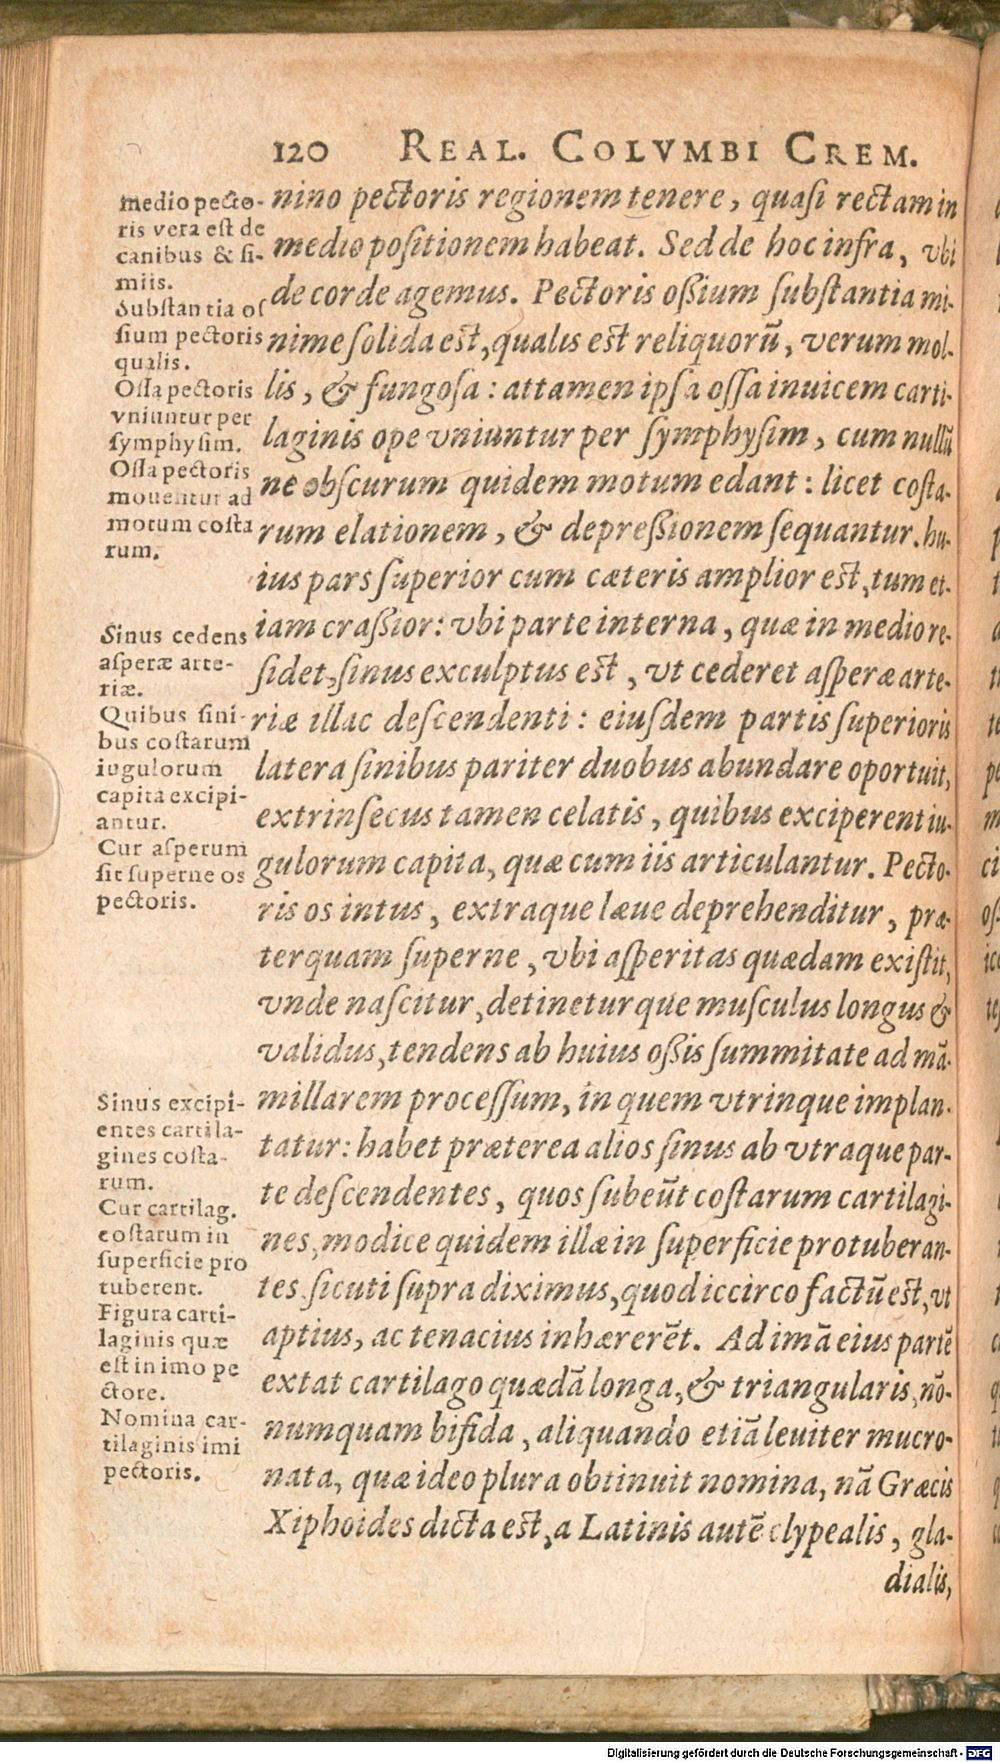 120 REAL. COLVMBI CREM.
medio pecto-
ris vera est de
canibus & si-
miis.
Substantia os
sium pectoris
qualis.
Ossa pectoris
vniuntur per
symphysim.
Ossa pectoris
mouentur ad
motum costa
rum.
Sinus cedens
asperæ arte-
riæ.
Quibus sini-
bus costarum
iugulorum
capita excipi-
antur.
Cur asperum
sit superne os
pectoris.
Sinus excipi-
entes cartila-
gines costa-
rum.
Cur cartilag.
costarum in
superficie pro
tuberent.
Figura carti-
laginis quæ
est in imo pe
ctore.
Nomina car-
tilaginis imi
pectoris.
nino pectoris regionem tenere, quasi rectam in
medio positionem habeat. Sed de hoc infra, vbi
de corde agemus. Pectoris oßium substantia mi-
nime solida est, qualis est reliquorũ, verum mol-
lis, & fungosa: attamen ipsa ossa inuicem carti-
laginis ope vniuntur per symphysim, cum nullũ
ne obscurum quidem motum edant: licet costa-
rum elationem, & depreßionem sequantur. hu-
ius pars superior cum cæteris amplior est, tum et-
iam craßior: vbi parte interna, quæ in medio re-
sidet, sinus exculptus est, vt cederet asperæ arte-
riæ illac descendenti: eiusdem partis superioris
latera sinibus pariter duobus abundare oportuit,
extrinsecus tamen celatis, quibus exciperent iu-
gulorum capita, quæ cum iis articulantur. Pecto-
ris os intus, extraque læue deprehenditur, præ-
terquam superne, vbi asperitas quædam existit,
vnde nascitur, detineturque musculus longus &
validus, tendens ab huius oßis summitate ad mã-
millarem processum, in quem vtrinque implan-
tatur: habet præterea alios sinus ab vtraque par-
te descendentes, quos subeũt costarum cartilagi-
nes, modice quidem illæ in superficie protuberan-
tes. sicuti supra diximus, quod iccirco factũ est, vt
aptius, ac tenacius inhærerẽt. Ad imã eius partẽ
extat cartilago quædã longa, & triangularis, nõ-
numquam bifida, aliquando etiã leuiter mucro-
nata, quæ ideo plura obtinuit nomina, nã Græcis
Xiphoides dicta est, a Latinis autẽ clypealis, gla-
dialis,
Digitalisierung gefördert durch die Deutsche Forschungsgemeinschaft - DFG